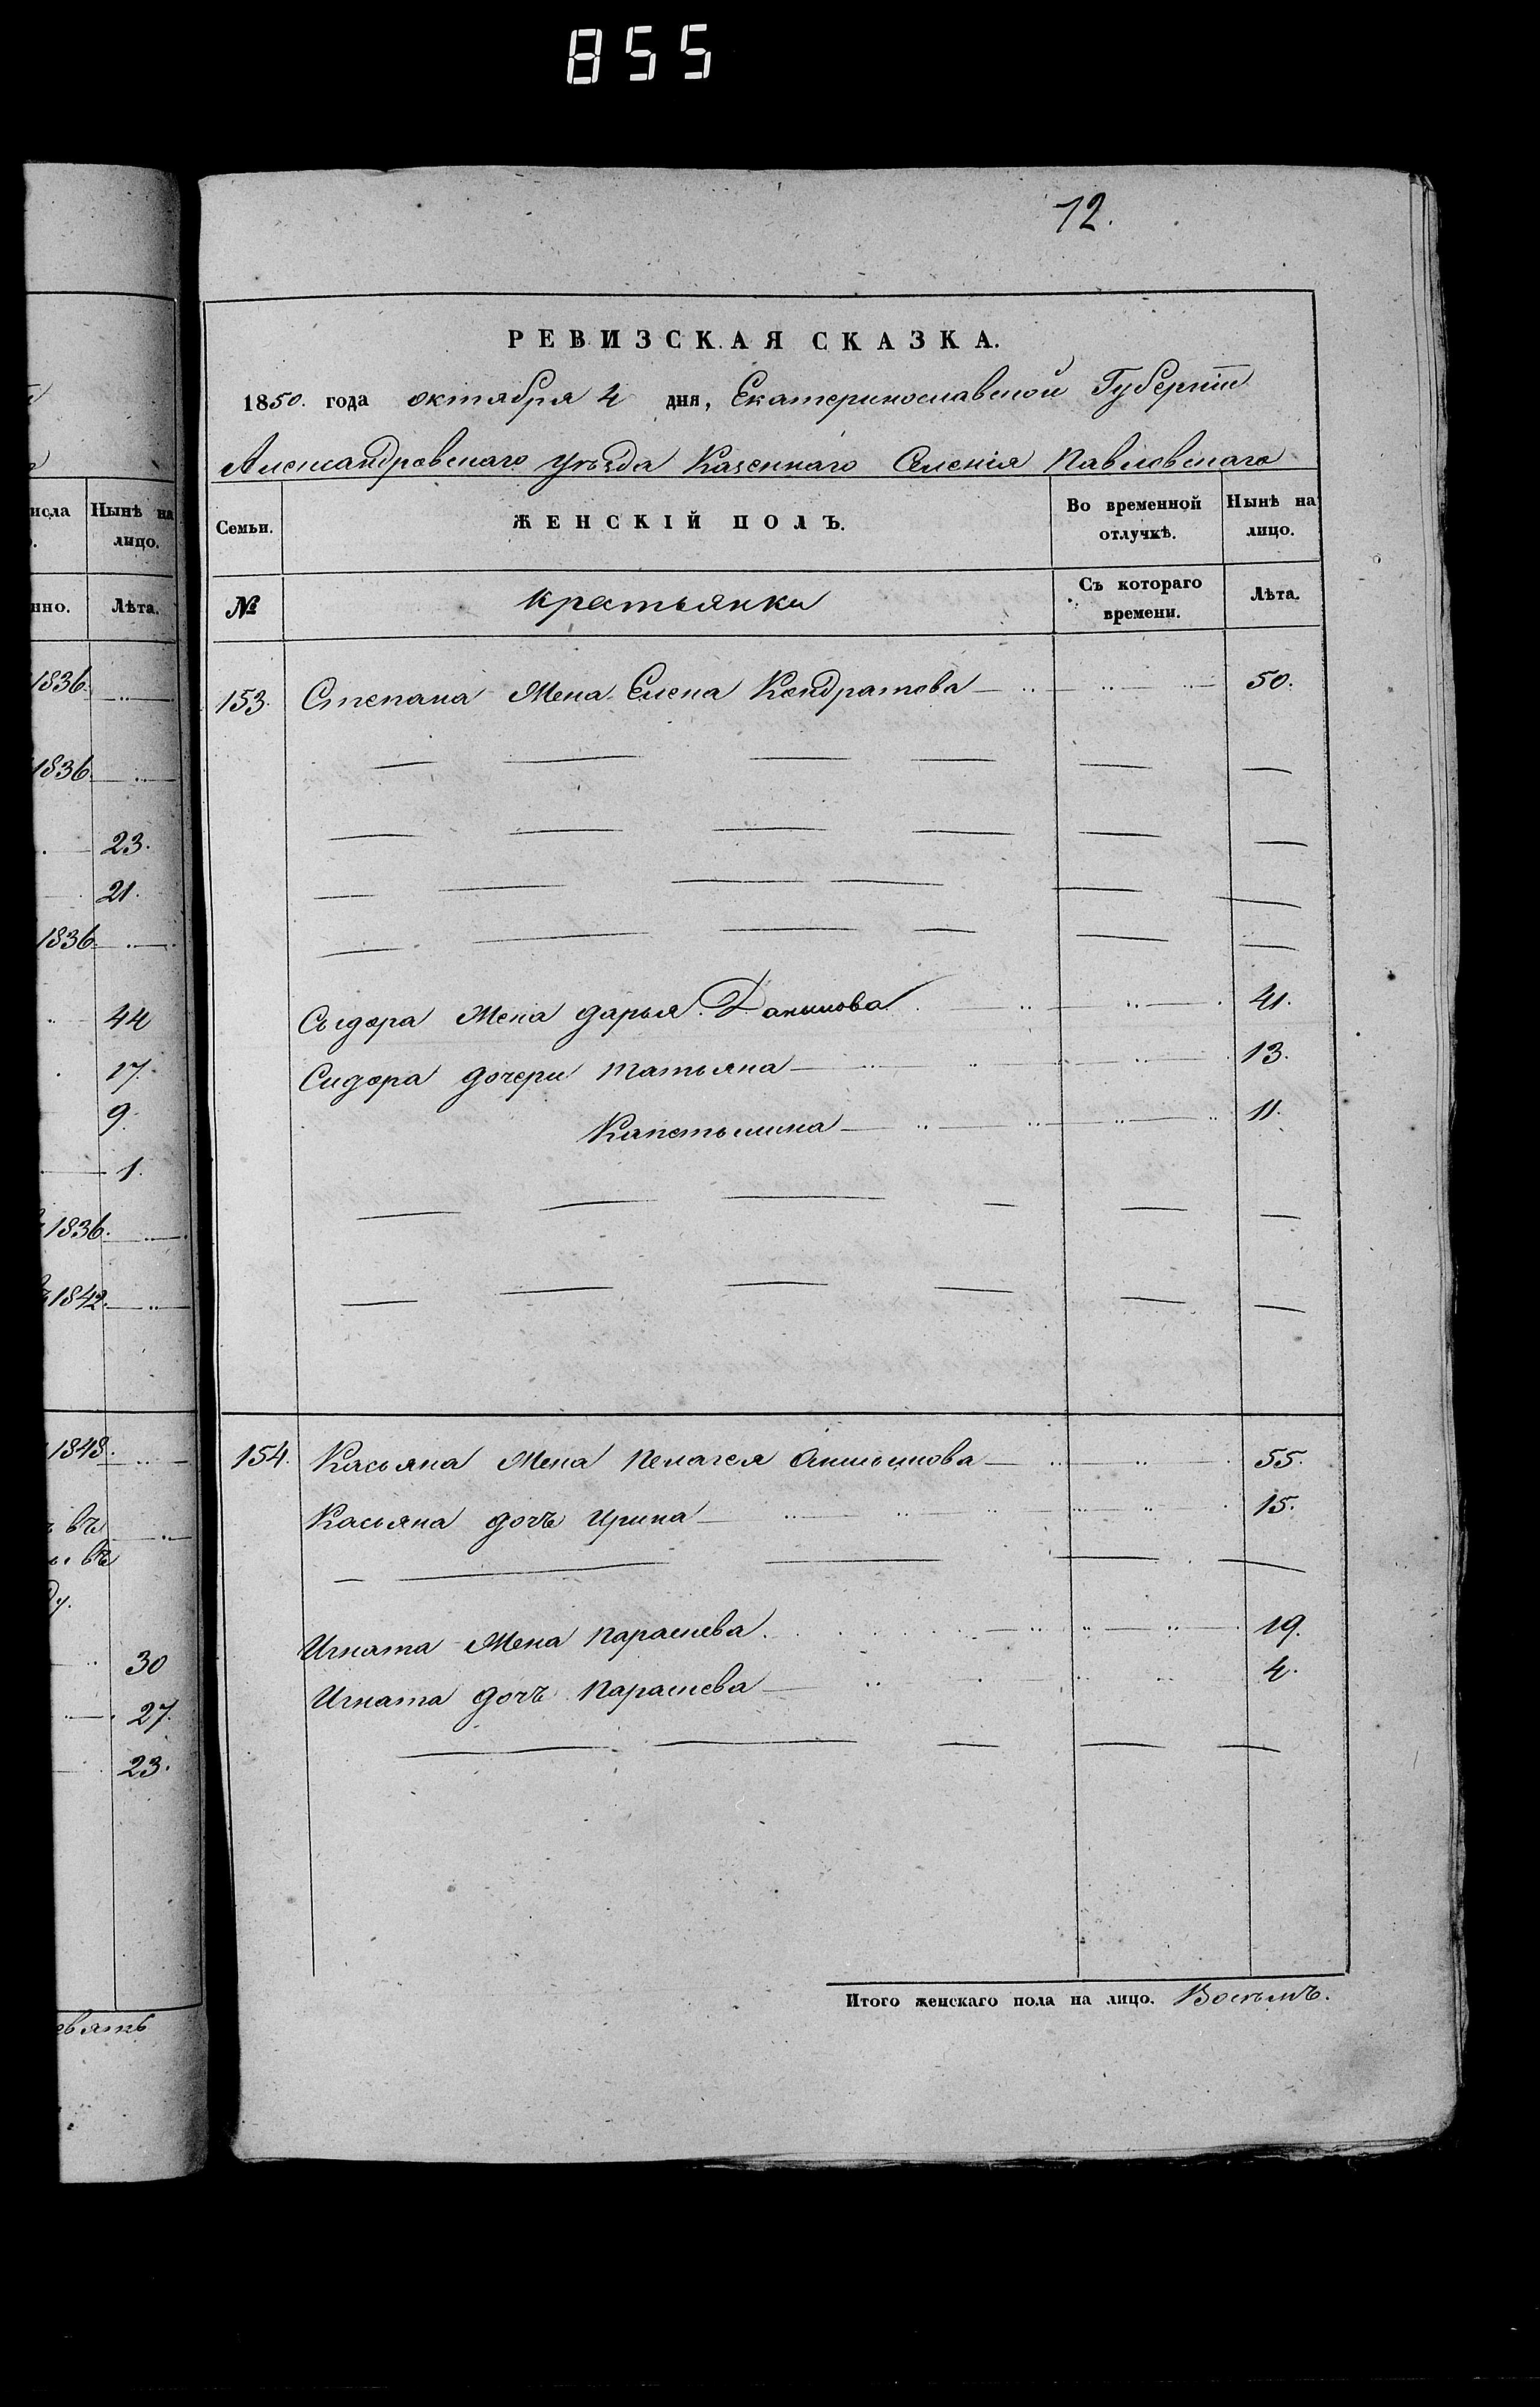 855
12.
РЕВИЗСКАЯ СКАЗКА.
1850. года октября 4 дня, Екатеринославской Губерніи
Александровскаго уѣзда Казеннаго Селенія Павловскаго
исла Нынѣ на лицо.
Семьи. ЖЕНСКІЙ ПОЛЪ. Во временной отлучкѣ. Нынѣ на лицо.
нно. Лѣта.
№ крестьянки Съ котораго времени. Лѣта.
1836.
153. Степана Жена Елена Кондратова 50.
1836.
23.
21.
1836
Сыдора Жена дарья Данилова 41.
44
Сидора дочери татьяна 13.
17.
Капетылина 11.
9.
1.
1836.
1842.
1848.
154. Касьяна Жена Пелагея 55.
Касьяна дочь Ирина 15.
въ
въ
ду.
Игната Жена параскева 19.
30
Игната дочь Параскева 4.
27.
23.
Итого женскаго пола на лицо. Восъмъ.
евять